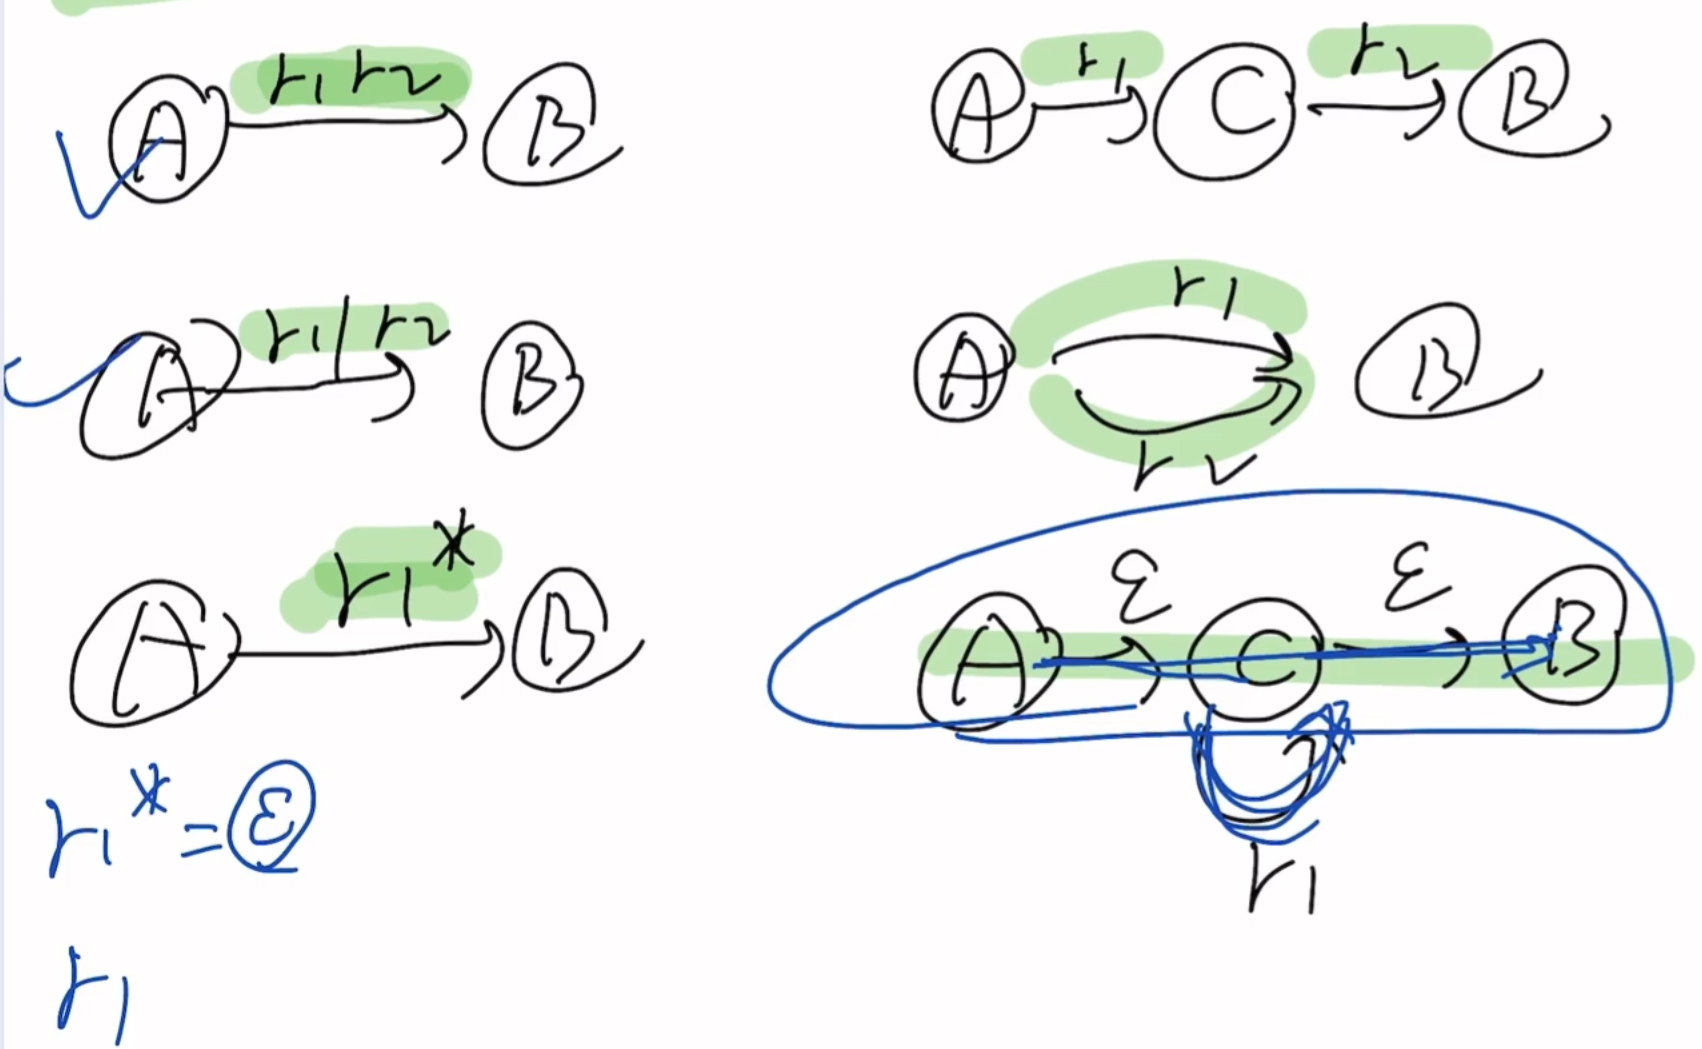 A r1 r2 B
A r1 C r2 B
A r1 | r2 B
A r1 B
r2
A r1* B
A ε C ε B
r1
r1* = ε
r1